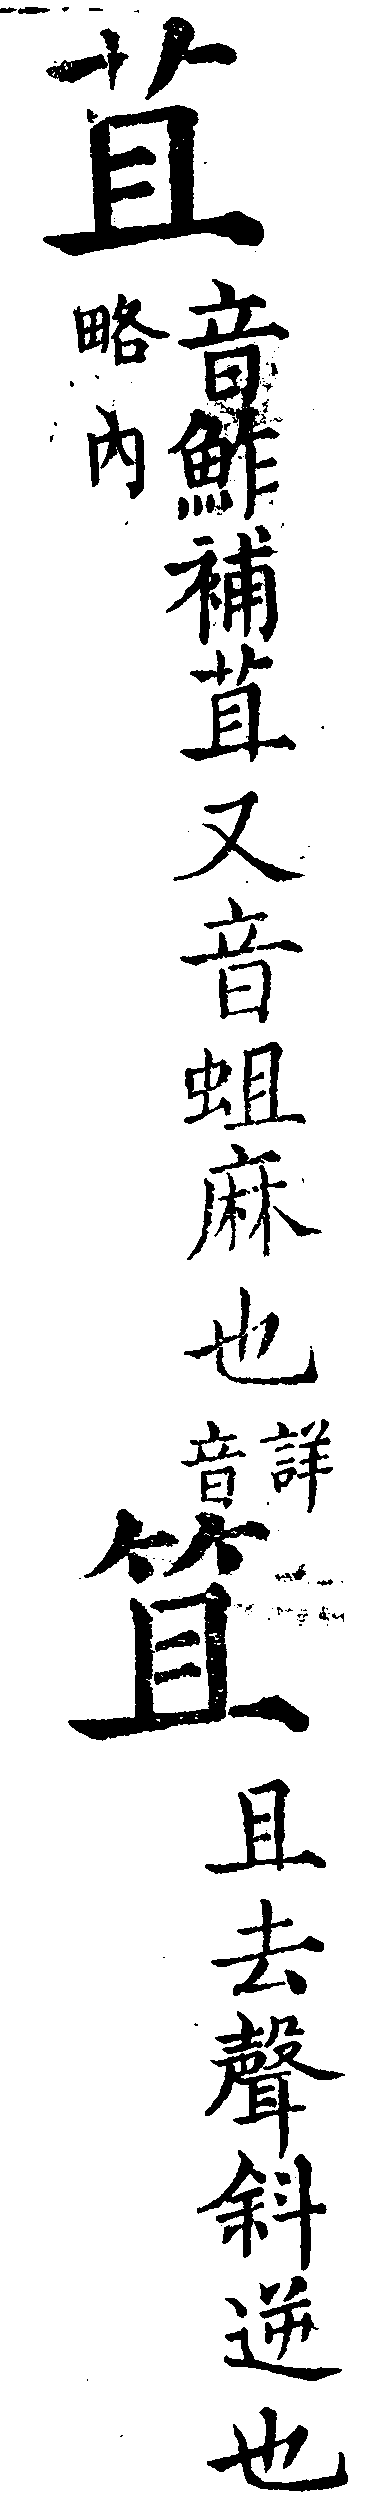 苴
音鮓補苴又音蛆麻也
詳
音
略內
笡
且去聲斜逆也